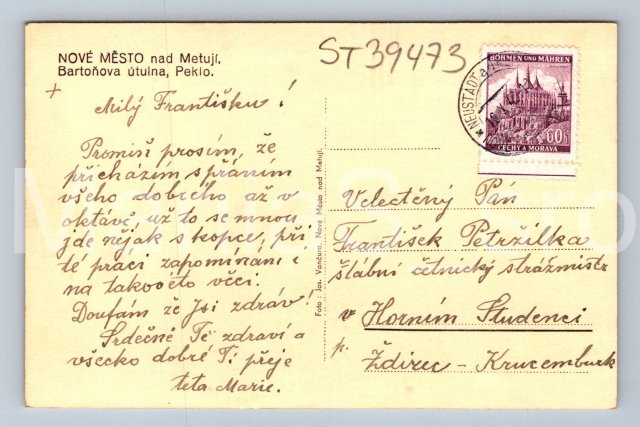 NOVÉ MĚSTO nad Metují,
Bartoňova útulna, Peklo.
ST39473
BÖHMEN UND MÄHREN
60 h
ČECHY A MORAVA
NEUSTADT a. d.
+
Milý Františku!
Promiň prosím, že
přicházím s přáním
všeho dobrého až v
oktávě, už to se mnou
jde nějak s kopce, při
té práci zapomínáni i
na takovéto věci.
Doufám že Jsi zdráv!
Srdečně Tě zdraví a
všecko dobré Ti přeje
teta Marie.
Foto: Jos. Vančura, Nové Město nad Metují.
Velectěný Pán
František Petržilka
štábní četnický strážmistr
v Horním Studenci
p. Ždirec-Krucemburk